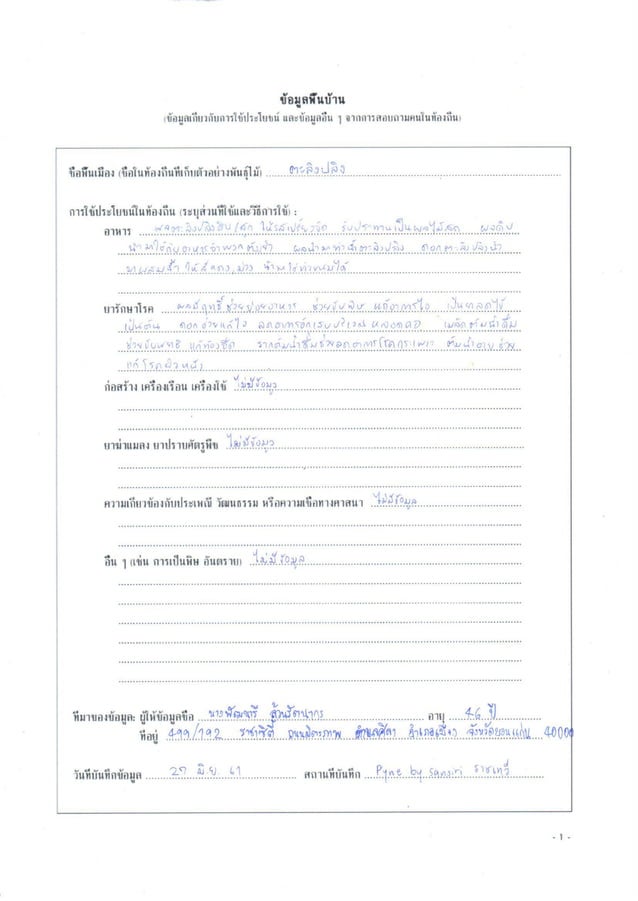 ข้อมูลพื้นบ้าน
(ข้อมูลเกี่ยวกับการใช้ประโยชน์ และข้อมูลอื่น ๆ จากการสอบถามคนในท้องถิ่น)
ชื่อพื้นเมือง (ชื่อในท้องถิ่นที่เก็บตัวอย่างพันธุ์ไม้) ตะลิงปลิง
การใช้ประโยชน์ในท้องถิ่น (ระบุส่วนที่ใช้และวิธีการใช้) :
อาหาร ผลตะลิงปลิงดิบ/สุก ให้รสเปรี้ยวจัด รับประทานเป็นผลไม้สด ผลดิบ
นำมาใช้กับอาหารจำพวกต้มยำ ผลนำมาทำน้ำตะลิงปลิง ดอกตะลิงปลิงนำ
มาผสมน้ำ ให้สีแดง, ม่วง
ยารักษาโรค ผลมีฤทธิ์ช่วยย่อยอาหาร ช่วยขับพิษ แก้อาการไอ เป็นยาลดไข้
เป็นต้น ดอกช่วยแก้ไอ ลดอาการอักเสบบริเวณหลอดคอ เมล็ดต้มน้ำดื่ม
ช่วยขับพยาธิ แก้ท้องอืด รากต้มน้ำดื่มช่วยลดอาการโรคกระเพาะ ต้มน้ำอาบช่วย
แก้โรคผิวหนัง
ก่อสร้าง เครื่องเรือน เครื่องใช้ ไม่มีข้อมูล
ยาฆ่าแมลง ยาปราบศัตรูพืช ไม่มีข้อมูล
ความเกี่ยวข้องกับประเพณี วัฒนธรรม หรือความเชื่อทางศาสนา ไม่มีข้อมูล
อื่น ๆ (เช่น การเป็นพิษ อันตราย) ไม่มีข้อมูล
ที่มาของข้อมูล: ผู้ให้ข้อมูลชื่อ อายุ 46 ปี
ที่อยู่ 499/192 ราชาซิตี้ ถนนมิตรภาพ ตำบลศิลา อำเภอเมือง จังหวัดขอนแก่น 40000
วันที่บันทึกข้อมูล 27 มิ.ย. 61 สถานที่บันทึก Pyne by Sansiri ราชเทวี
- 1 -